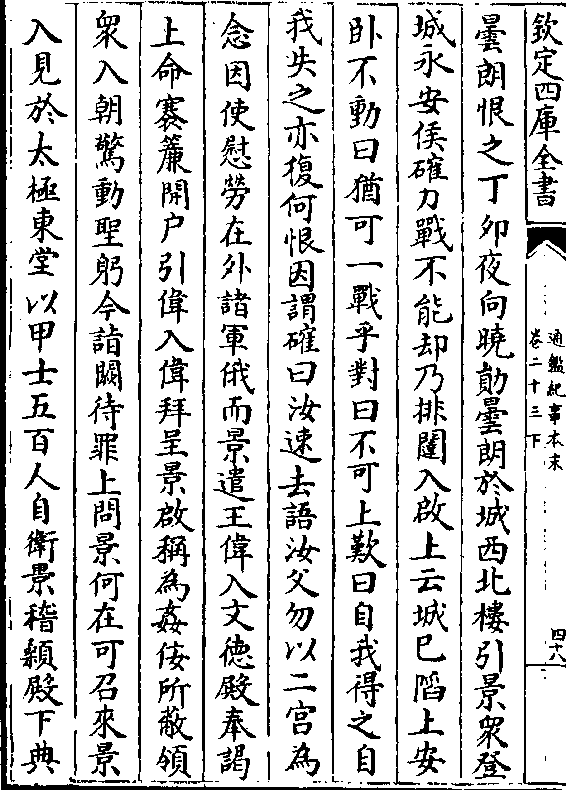 欽定四庫全書
通鑑紀事本末
卷二十三下
四十八
曇朗恨之丁夘夜向曉勛曇朗於城西北樓引景衆登
城永安侯確力戰不能却乃排闥入啟上云城已陷上安
卧不動曰猶可一戰乎對曰不可上歎曰自我得之自
我失之亦復何恨因謂確曰汝速去語汝父勿以二宫為
念因使慰勞在外諸軍俄而景遣王偉入文徳殿奉謁
上命褰簾開户引偉入偉拜呈景啟稱為姦佞所蔽領
衆入朝驚動聖躬今詣闕待罪上問景何在可召來景
入見於太極東堂以甲士五百人自衛景稽顙殿下典